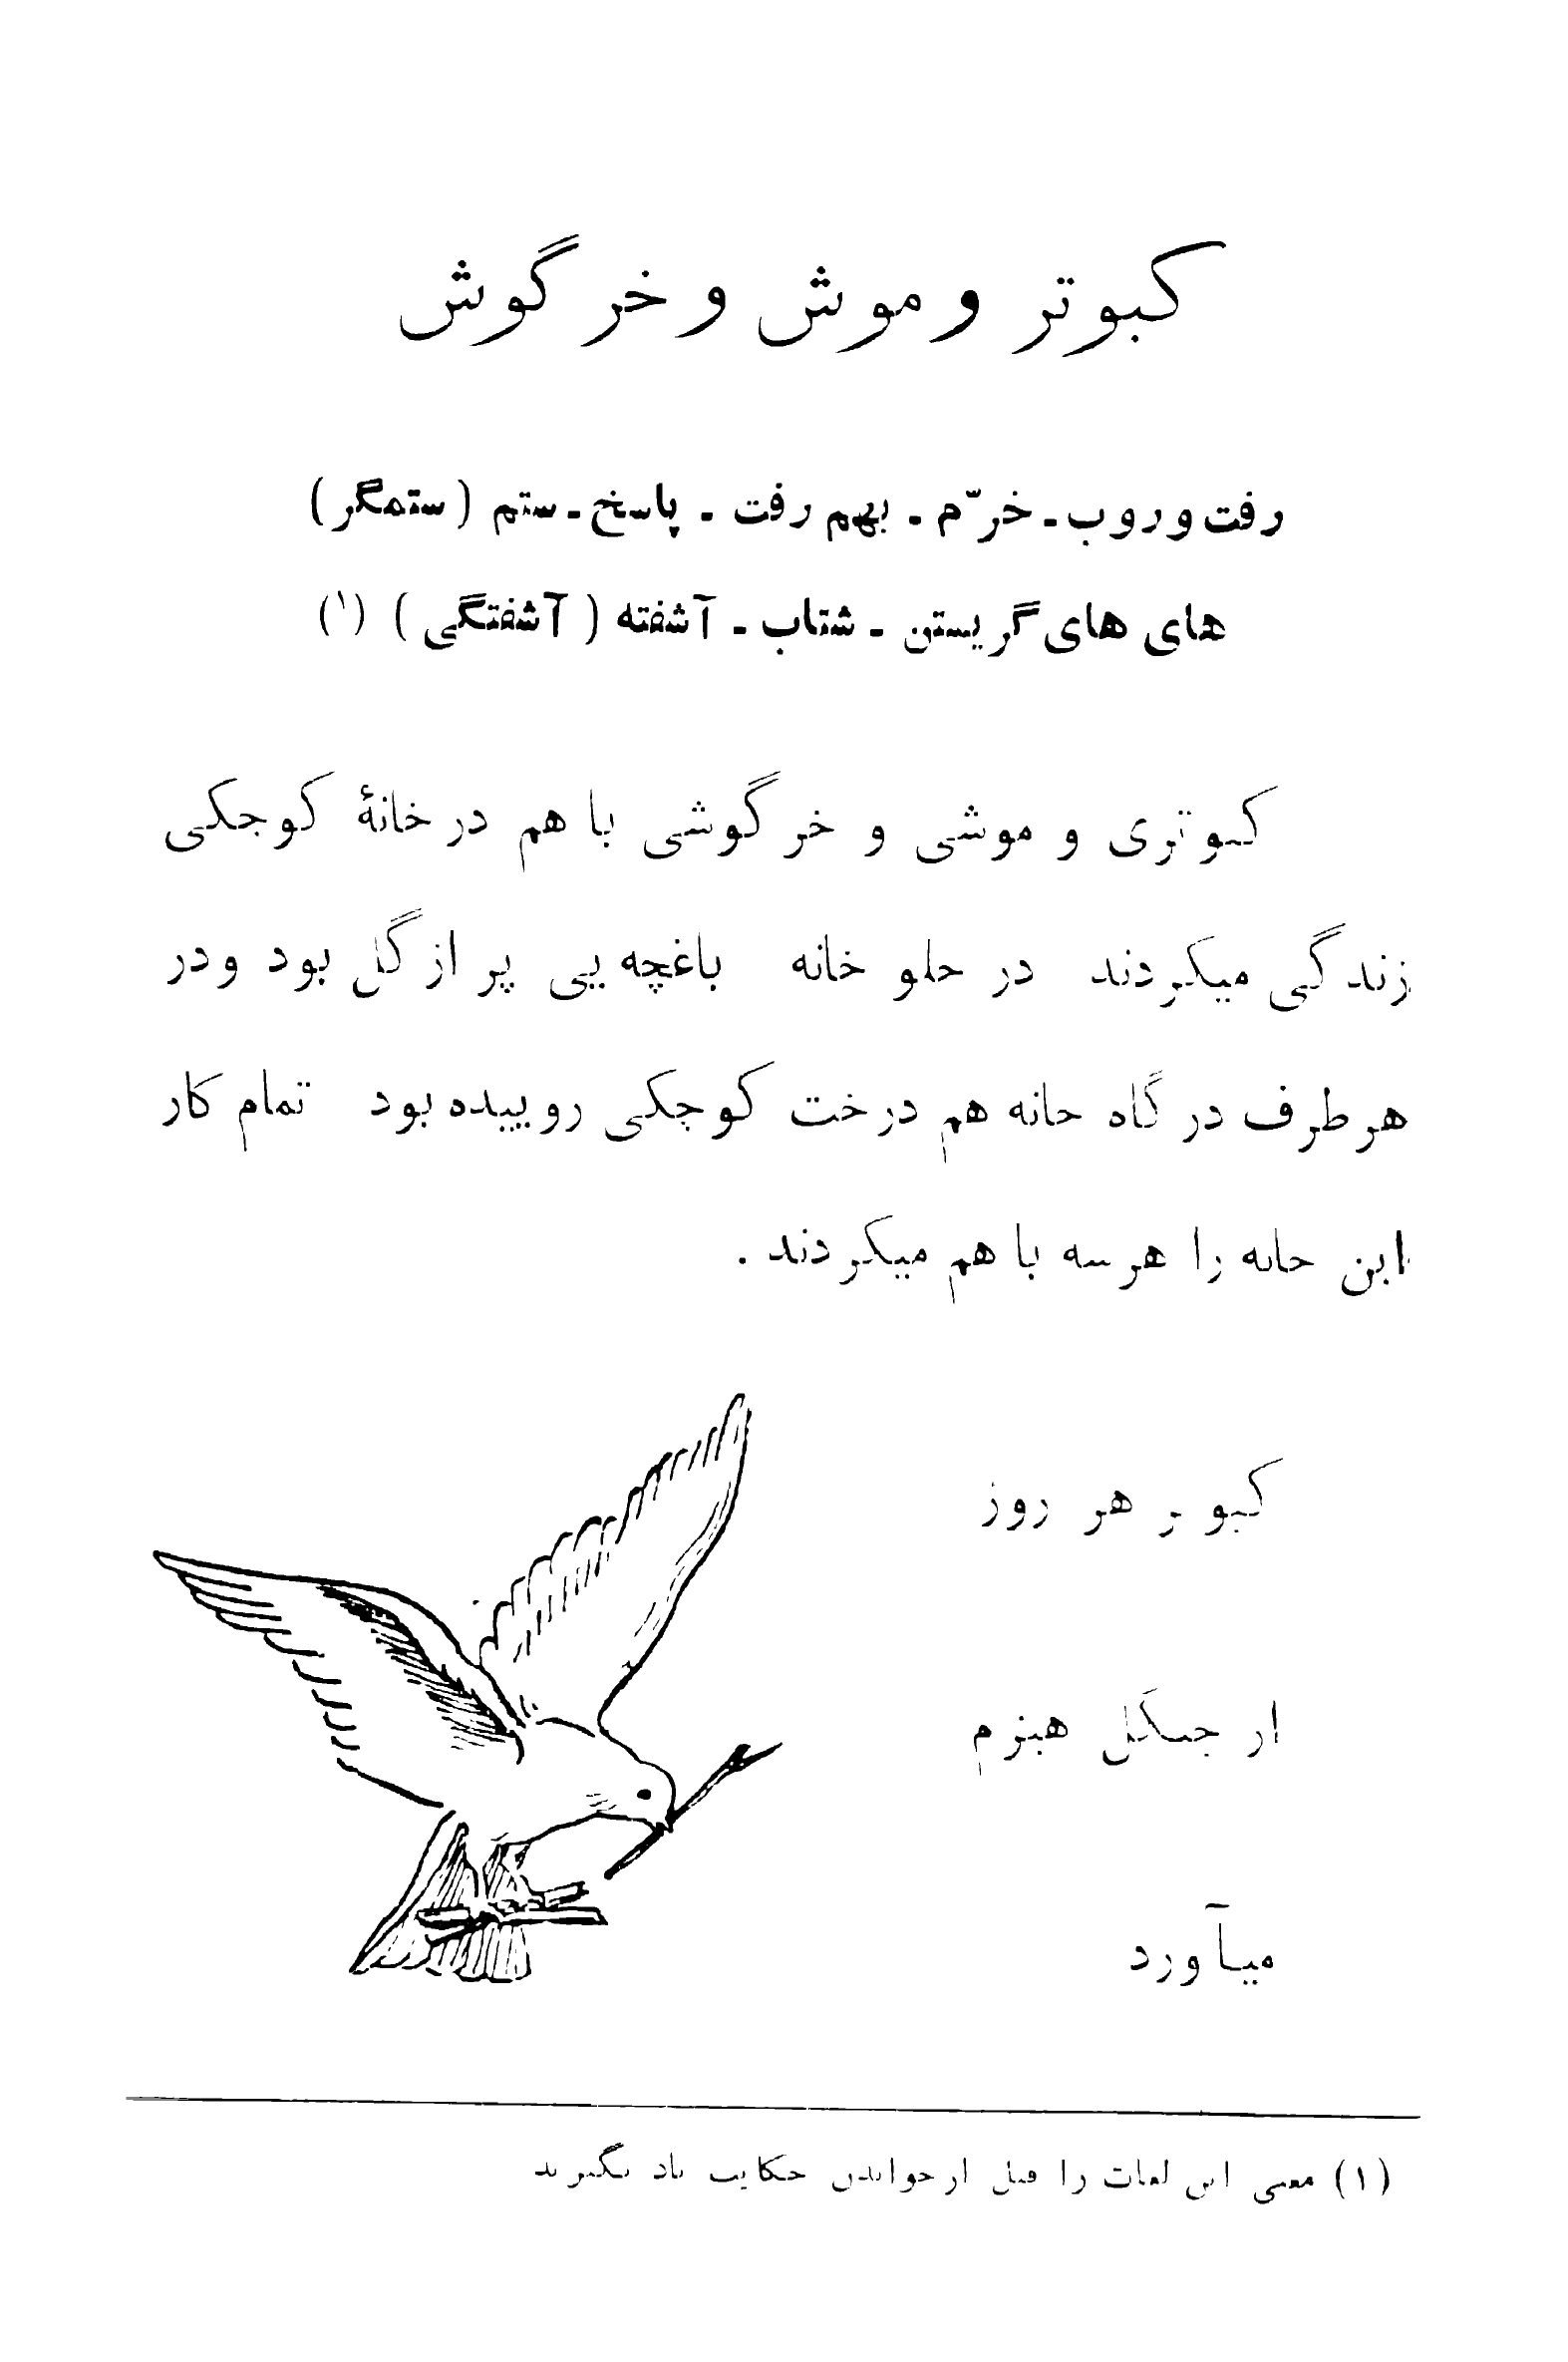 کبوتر و موش و خرگوش
رفت و روب ـ خرّم ـ بهم رفت ـ پاسخ ـ ستم (ستمگر)
های های گریستن ـ شتاب ـ آشفته (آشفتگی) (۱)
کبوتری و موشی و خرگوشی با هم در خانهٔ کوچکی
زندگی میکردند در جلو خانه باغچه یی پر از گل بود و در
هر طرف درگاه خانه هم درخت کوچکی روییده بود تمام کار
این خانه را هر سه با هم میکردند .
کبوتر هر روز
از جنگل هیزم
میآورد
(۱) معنی این لغات را قبل از خواندن حکایت یاد بگیرید